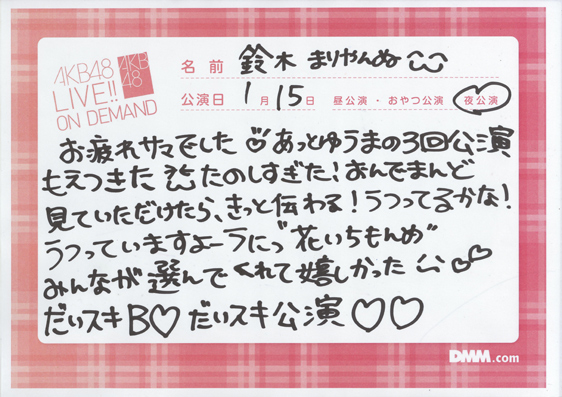 AKB48
LIVE!!
ON DEMAND
AKB
48
名前 鈴木 まりやんぬ
公演日 1月15日 昼公演・おやつ公演 夜公演
お疲れサマでした♡あっとゆうまの3回公演
もえつきた たのしすぎた!おんでまんど
見ていただけたら、きっと伝わる!うつってるかな!
うつっていますよーうに"花いちもんめ"
みんなが選んでくれて嬉しかった ♡♡
だいスキB♡だいスキ公演♡♡
DMM.com